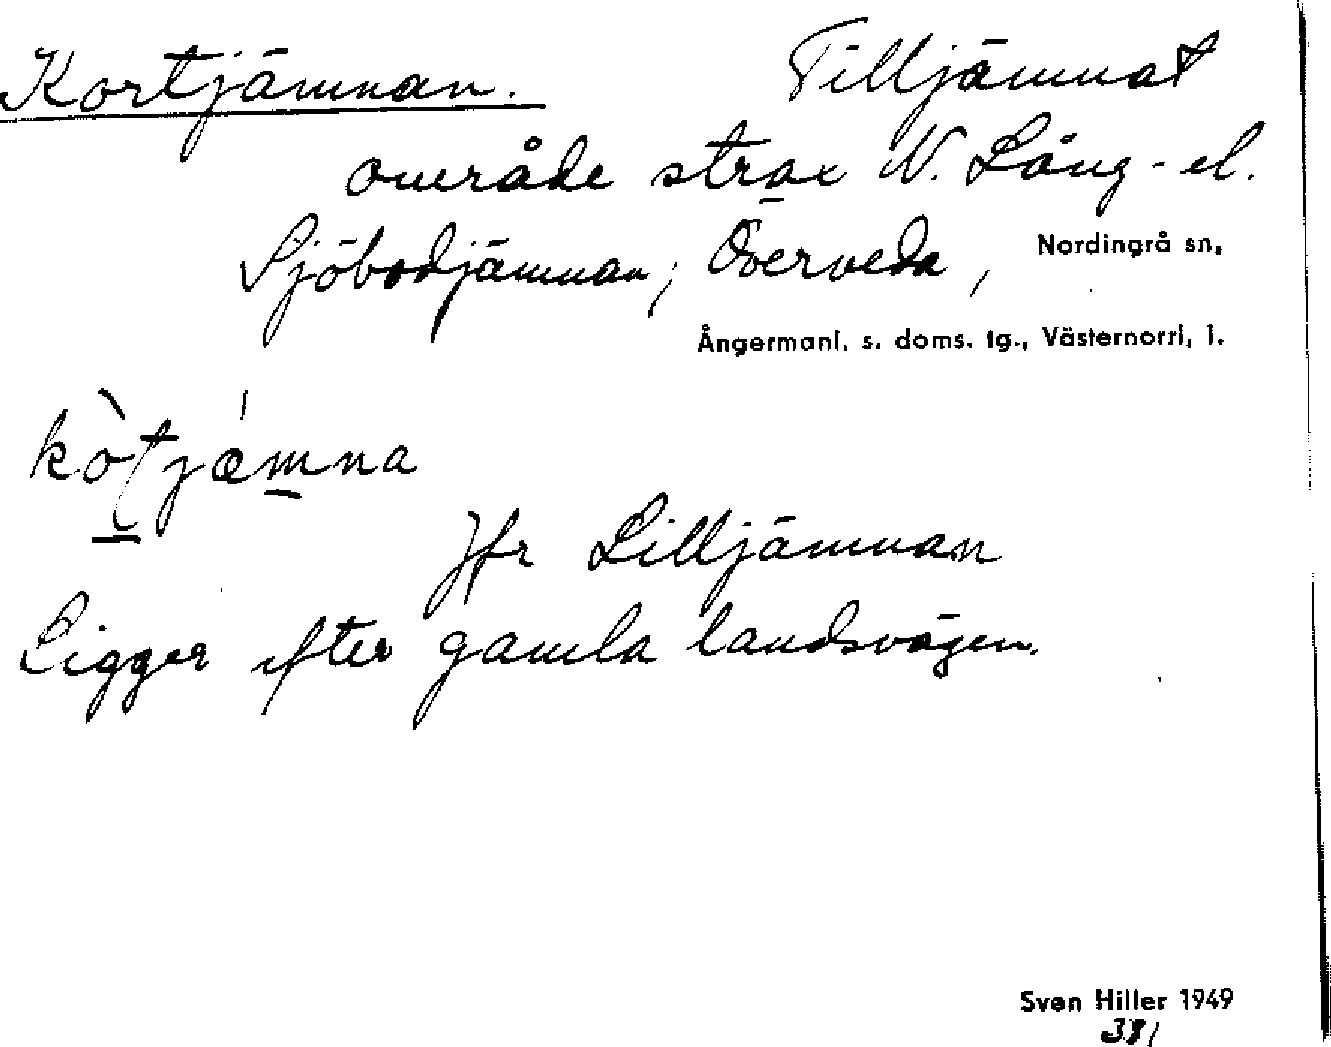 Kortjämnan. Tilljämnat
område strax N. Lång- el.
Sjöbodjämnan, Överveda, Nordingrå sn,
Ångermanl. s. doms. tg., Västernorrl. l.
kòtjæ̀mna
Jfr Lilljämnan
Ligger efter gamla landsvägen.
Sven Hiller 1949